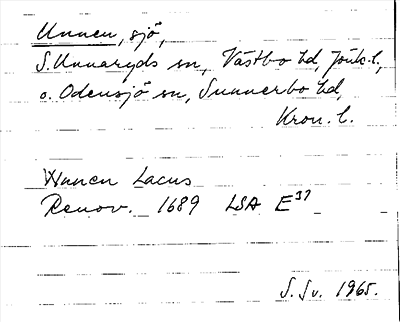 Unnen, sjö,
S. Unnaryds sn, Västbo hd, Jönk. l.,
o. Odensjö sn, Sunnerbo hd,
Kron. l.
Wnnen Lacus
Renov. 1689 LSA E³⁷
S. Sv. 1965.